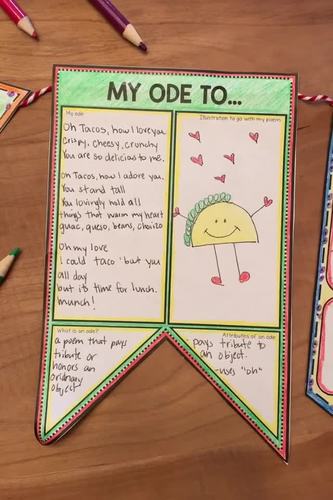 MY ODE TO...
My ode
Oh Tacos, how I love you
Crispy, cheesy, crunchy
You are so delicious to me.
Oh Tacos, how I adore you.
You stand tall
You lovingly hold all
things that warm my heart
guac, queso, beans, chorizo
Oh my love
I could taco 'bout you
all day
but it's time for lunch.
munch!
Illustration to go with my poem
What is an ode?
a poem that pays
tribute or
honors an
ordinary
object
Attributes of an ode
pays tribute to
an object.
-uses "oh"